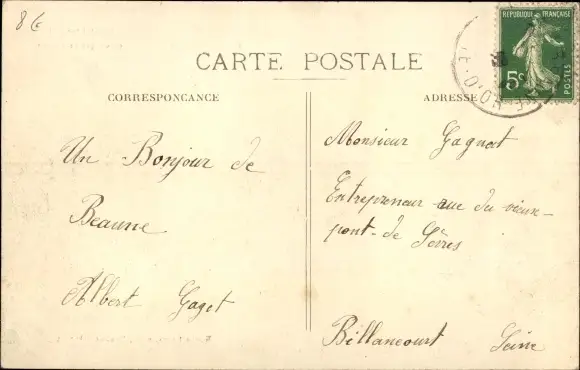 8 €
REPUBLIQUE FRANÇAISE
5c
POSTES
CARTE POSTALE
CORRESPONCANCE
ADRESSE
Un Bonjour de
Beaune
Albert Gagot
Monsieur Gagnat
Entrepreneur rue du vieux-
pont-de Sèvres
Billancourt Seine